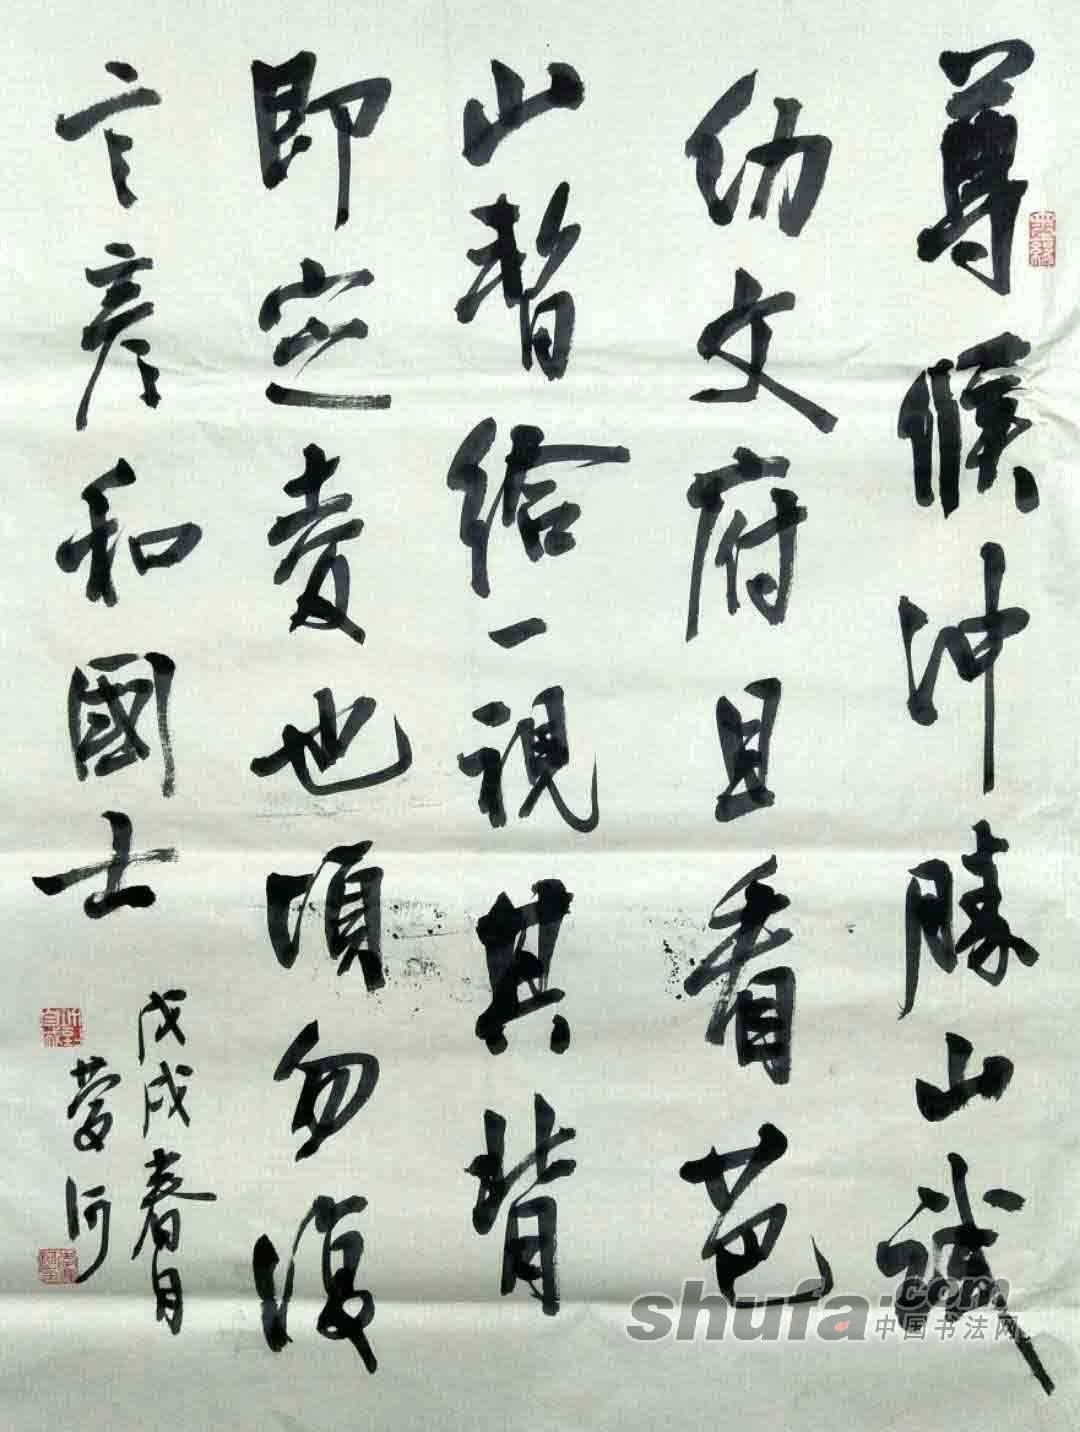 尊候冲勝山誠
幼文府且看芭
山暫給一視其背
即定卖也頃勿復
言彦和國士
戊戌春月
shufa.com
中国书法网